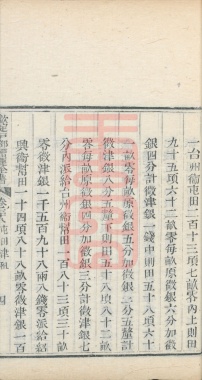 一台州衞屯田二百十三頃七畝零內上則田
九十五頃六十二畝零每畝原徵銀五分加徵
銀四分計徵津銀一錢中則田五十八頃六十
一畝零每畝原徵銀五分加徵銀三分五釐計
徵津銀八分五釐下則田五十八頃八十三畝
零每畝原徵銀四分加徵銀三分計徵津銀七
分內派給台州衞幫田一百八十三頃三十畝
零徵津銀二千五百九十八兩八錢零派給紹
興衞幫田一十四頃十八畝零徵津銀一百
卷六屯田津租
四